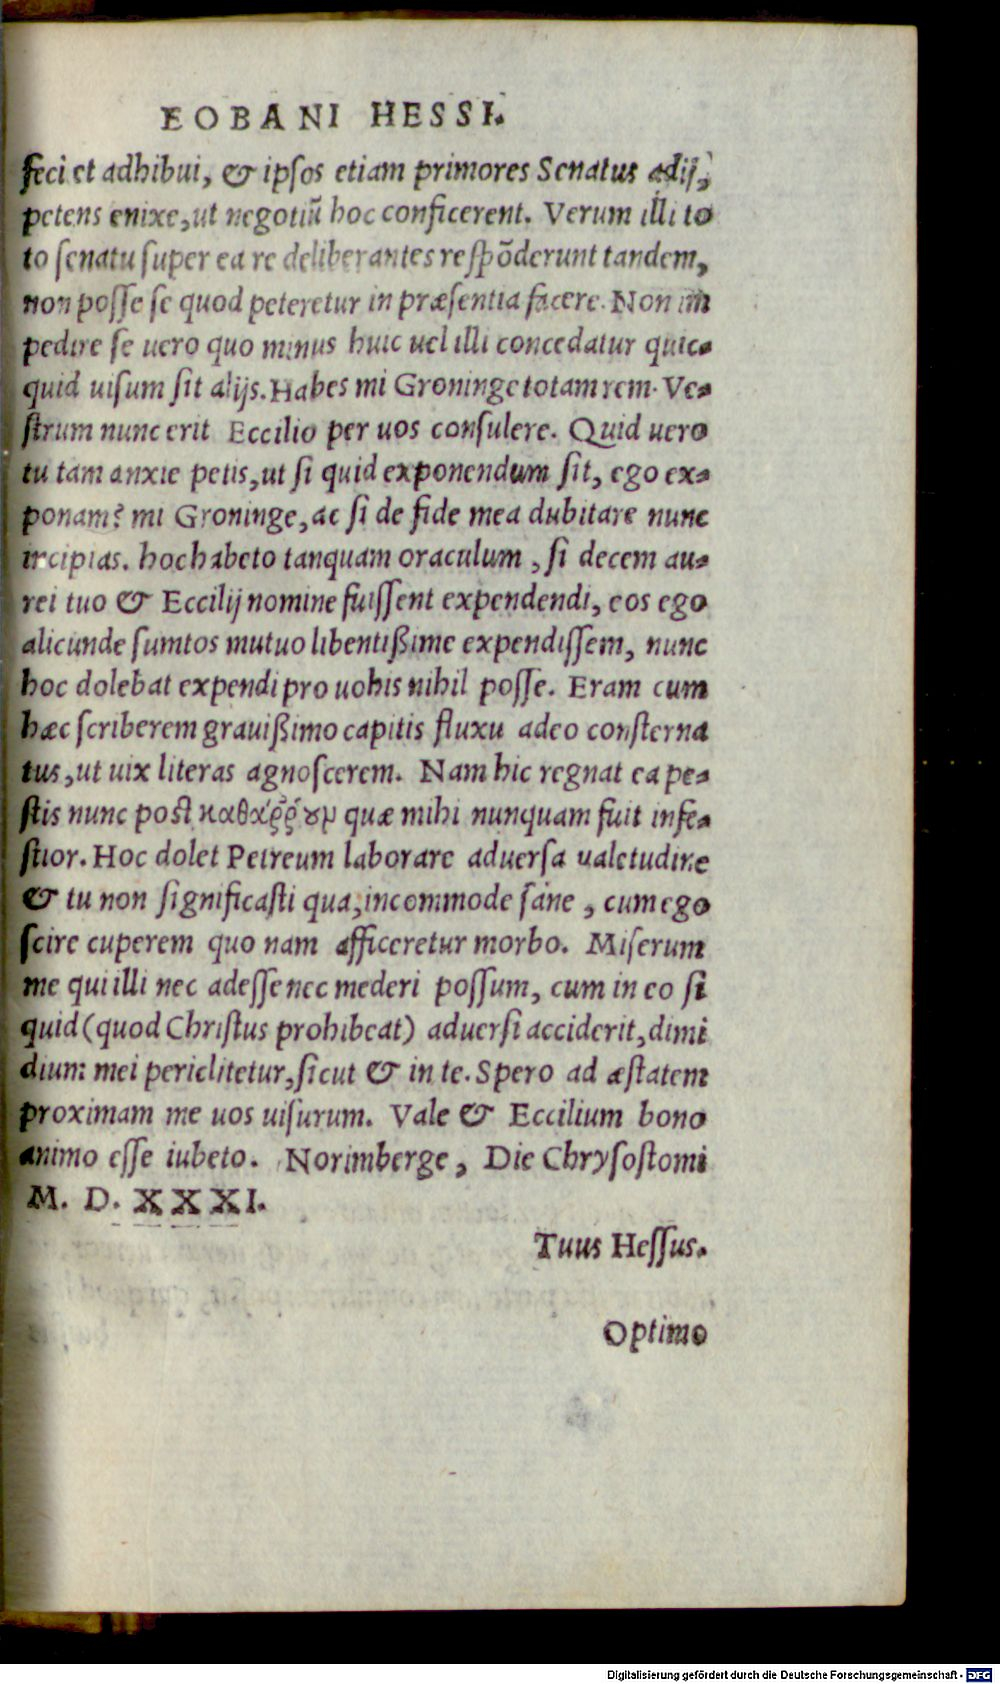 EOBANI HESSI.
feci et adhibui, & ipsos etiam primores Senatus adij,
petens enixe, ut negotiũ hoc conficerent. Verum illi to
to senatu super ea re deliberantes respõderunt tandem,
non posse se quod peteretur in præsentia facere. Non im
pedire se uero quo minus huic uel illi concedatur quic-
quid uisum sit alijs. Habes mi Groninge totam rem. Ve-
strum nunc erit Eccilio per uos consulere. Quid uero
tu tam anxie petis, ut si quid exponendum sit, ego ex-
ponam? mi Groninge, ac si de fide mea dubitare nunc
incipias. hoc habeto tanquam oraculum, si decem au-
rei tuo & Eccilij nomine fuissent expendendi, eos ego
alicunde sumtos mutuo libentißime expendissem, nunc
hoc dolebat expendi pro uobis nihil posse. Eram cum
hæc scriberem grauißimo capitis fluxu adeo consterna
tus, ut uix literas agnoscerem. Nam hic regnat ea pe-
stis nunc post καθάῤῥουμ quæ mihi nunquam fuit infe-
stior. Hoc dolet Petreum laborare aduersa ualetudine
& tu non significasti qua, incommode sane, cum ego
scire cuperem quo nam afficeretur morbo. Miserum
me qui illi nec adesse nec mederi possum, cum in eo si
quid (quod Christus prohibeat) aduersi acciderit, dimi
dium mei periclitetur, sicut & in te. Spero ad æstatem
proximam me uos uisurum. Vale & Eccilium bono
animo esse iubeto. Norimberge, Die Chrysostomi
M. D. XXXI.
Tuus Hessus.
Optimo
Digitalisierung gefördert durch die Deutsche Forschungsgemeinschaft - DFG